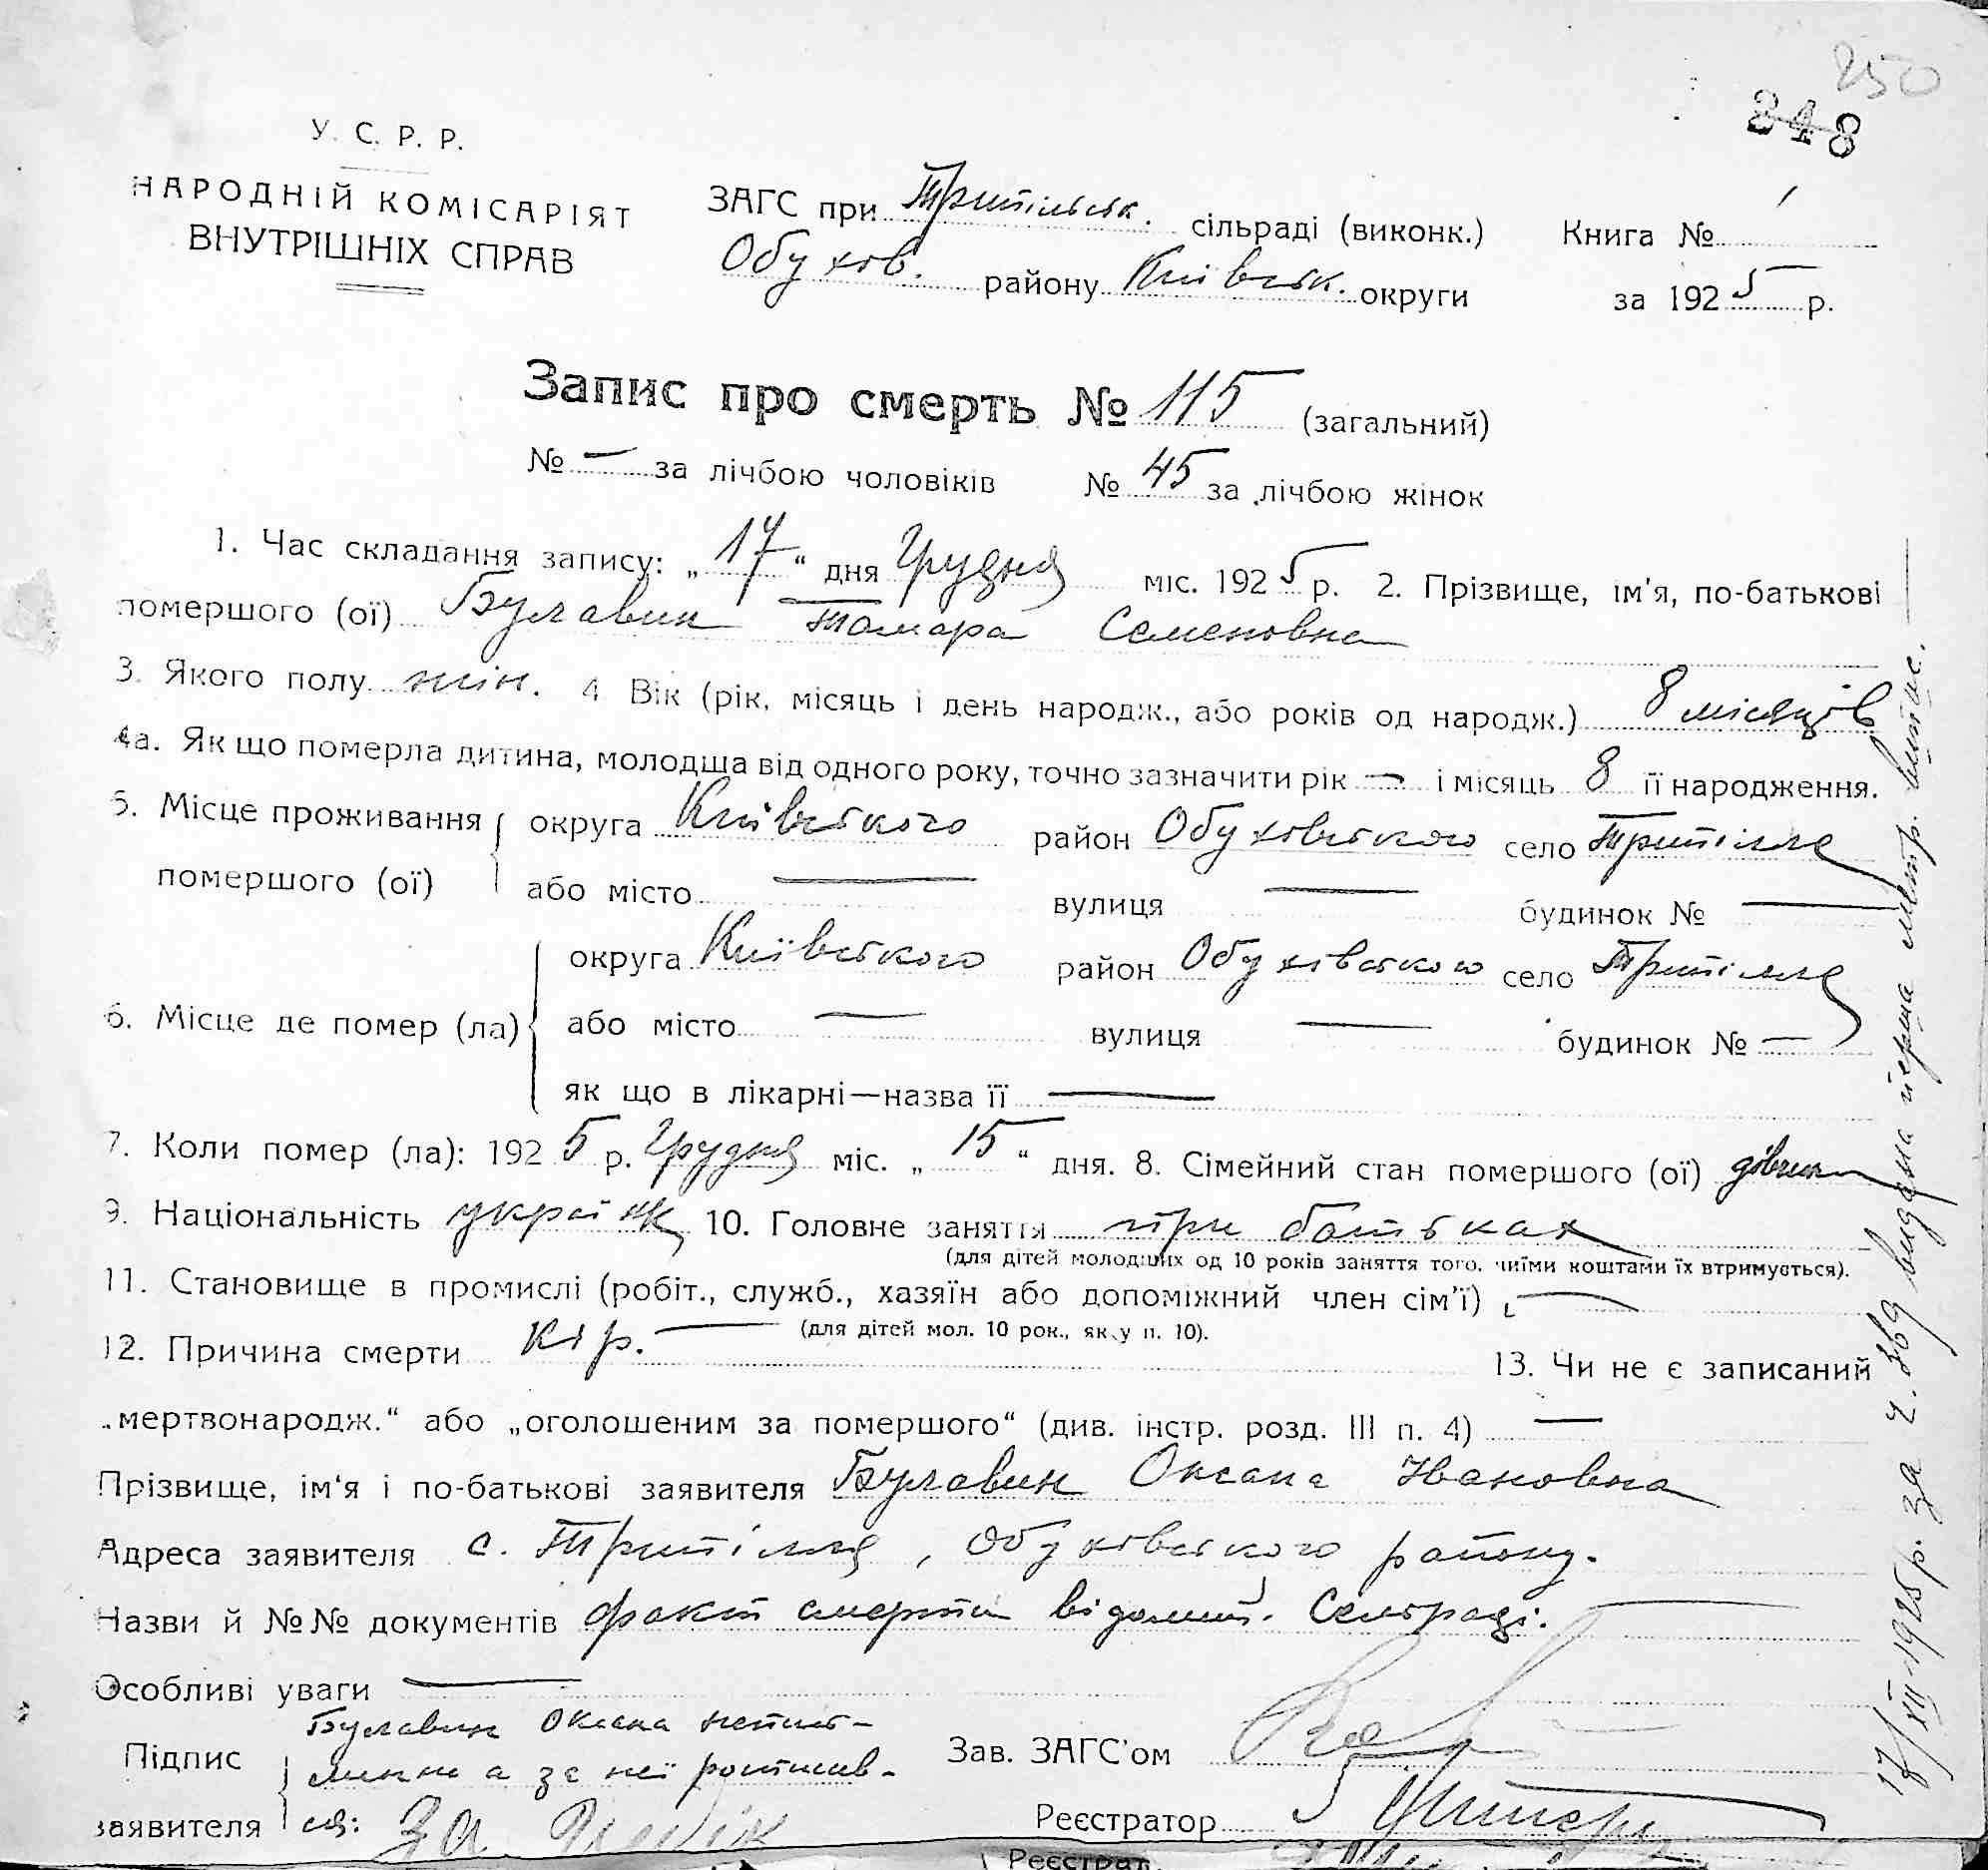 250
248
У. С. Р. Р.
НАРОДНІЙ КОМІСАРІЯТ
ВНУТРІШНІХ СПРАВ
ЗАГС при Трипільськ. сільраді (виконк.) Книга № 1
Обухов. району Київськ. округи за 1925 р.
Запис про смерть № 115 (загальний)
№ — за лічбою чоловіків № 45 за лічбою жінок
1. Час складання запису: „17“ дня Грудня міс. 1925 р. 2. Прізвище, ім'я, по-батькові
помершого (ої) Булавин Тамара Семеновна
3. Якого полу жін. 4 Вік (рік, місяць і день народж., або років од народж.) 8 місяців
4а. Як що померла дитина, молодша від одного року, точно зазначити рік — і місяць 8 її народження.
5. Місце проживання округа Київського район Обуховського село Трипілля
помершого (ої) або місто — вулиця — будинок № —
округа Київського район Обухівського село Трипілля
6. Місце де помер (ла) або місто — вулиця — будинок № —
як що в лікарні—назва її —
7. Коли помер (ла): 1925 р. Грудня міс. „15“ дня. 8. Сімейний стан помершого (ої) дівчина
9. Національність україн. 10. Головне заняття при батьках
(для дітей молодших од 10 років заняття того, чиїми коштами їх втримується).
11. Становище в промислі (робіт., служб., хазяїн або допоміжний член сім'ї) —
(для дітей мол. 10 рок., як у п. 10).
12. Причина смерти кір. — 13. Чи не є записаний
„мертвонародж.“ або „оголошеним за помершого“ (див. інстр. розд. III п. 4) —
Прізвище, ім'я і по-батькові заявителя Булавин Оксана Івановна
Адреса заявителя с. Трипілля, Обухівського району.
Назви й №№ документів факт смерти відомий Сельраді. —
Особливі уваги —
Підпис Булавин Оксана непись-
менна а за неї росписав-
заявителя ся: За
Зав. ЗАГС'ом
Реєстратор
Реєстрат.
17/XII-1925 р. за ч. 369 видана перша метр. випис. —